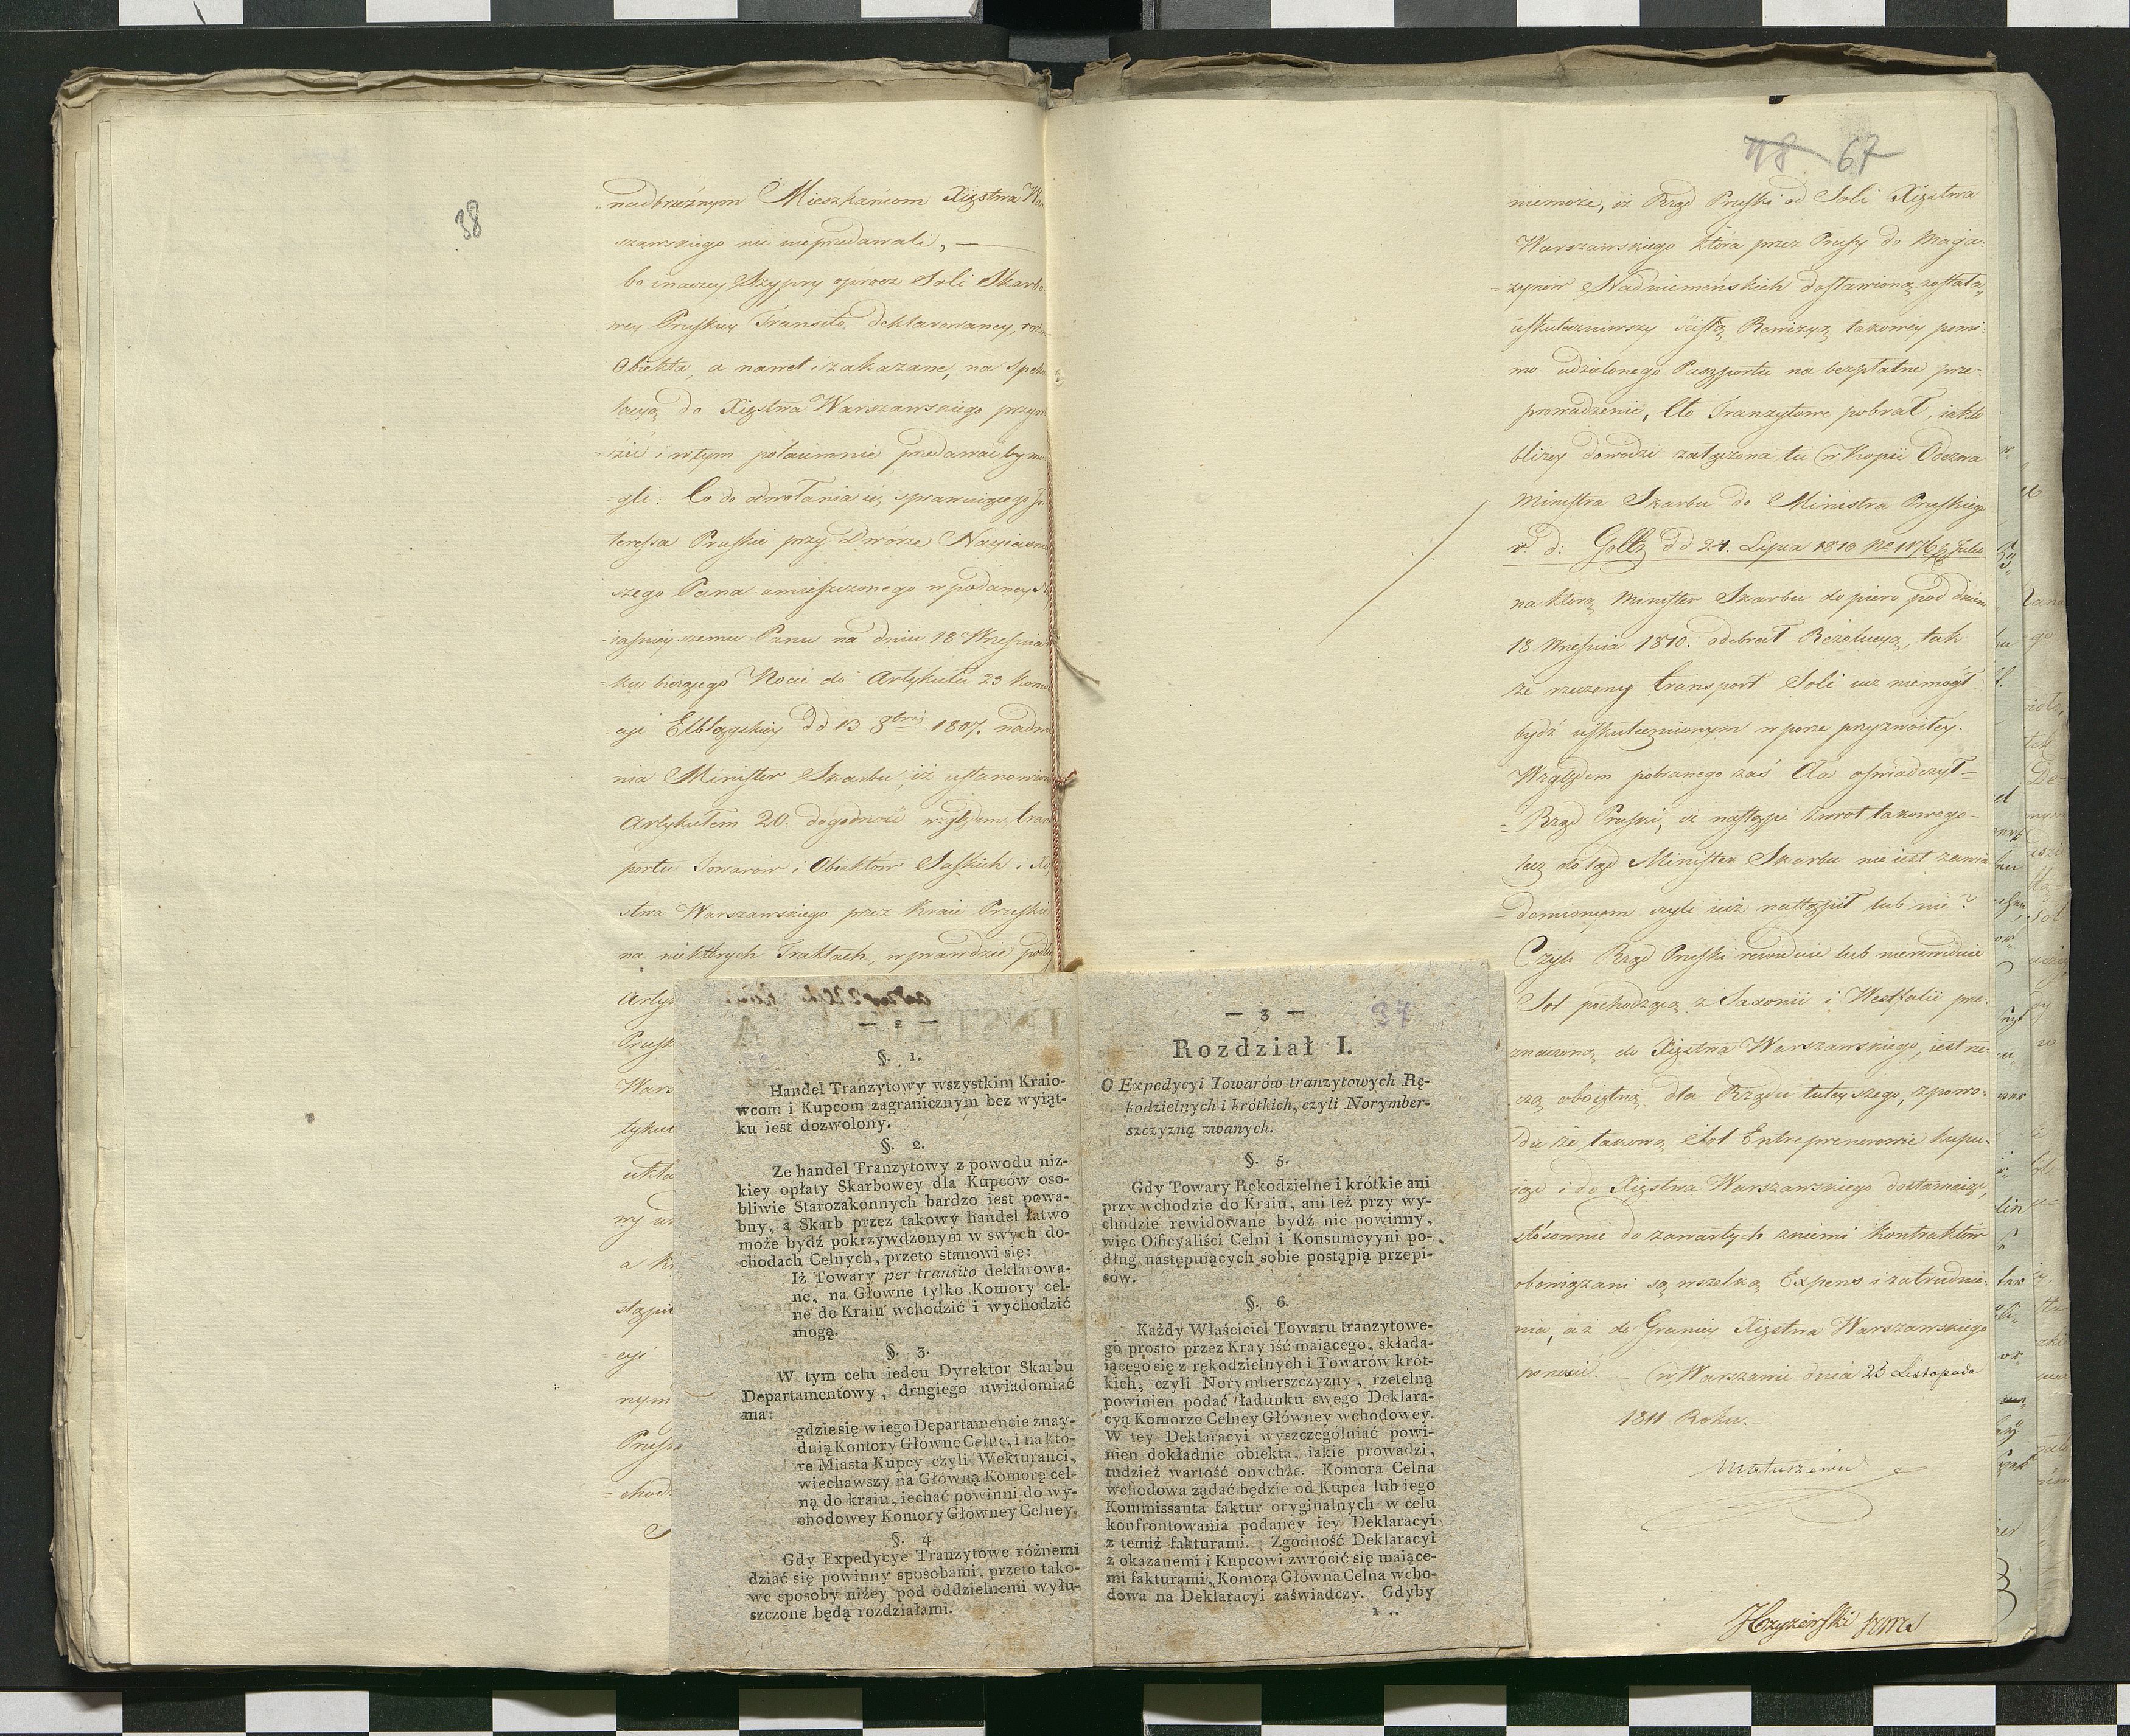 38
nadbrzeżnym Mieszkańcom Xięstwa War
szawskiego nie wyprzedawali, —
bo inaczey Szypry oprocz Soli Skarbo
wey Pruskiey Transito deklarowaney, różne
Obiekta, a nawet i zakazane, na speku
lacyą do Xięstwa Warszawskiego przyw
ozić i w tym potaiemnie przedawać by mo
gli. Co do odwołania się sprawuiącego In
teressa Pruskie przy Dworze Nayiaśniey
szego Pana umieszczonego w podaney N
iaśnieyszemu Panu na dniu 18 Września
ku bieżącego Nocie do Artykułu 23 Konw
cyi Elbląskiey dd 13 8bris 1807. nadmi
nia Minister Skarbu, iż ustanowione
Artykułem 20. dogodności względem trans
portu Towarów i Obiektów Saskich i Xię
stwa Warszawskiego przez Kraie Pruskie
na niektórych Traktach, wprawdzie podłu
Arty
Prusk
Wars
tykuł
ukła
wy
a k
stąpi
cyi
nym
Prus
chod
— 2 —
§. 1.
Handel Tranzytowy wszystkim Kraio-
wcom i Kupcom zagranicznym bez wyiąt-
ku iest dozwolony.
§. 2.
Ze handel Tranzytowy z powodu niz-
kiey opłaty Skarbowey dla Kupców oso-
bliwie Starozakonnych bardzo iest powa-
bny, a Skarb przez takowy handel łatwo
może bydź pokrzywdzonym w swych do-
chodach Celnych, przeto stanowi się:
Iż Towary per transito deklarowa-
ne, na Głowne tylko Komory cel-
ne do Kraiu wchodzić i wychodzić
mogą.
§. 3.
W tym celu ieden Dyrektor Skarbu
Departamentowy, drugiego uwiadomiać
ma:
gdzie się w iego Departamencie znay-
duią Komory Główne Celne, i na kto-
re Miasta Kupcy czyli Wekturanci,
wiechawszy na Główną Komorę cel-
ną do kraiu, iechać powinni do wy-
chodowey Komory Główney Celney.
§. 4
Gdy Expedycye Tranzytowe różnemi
dziać się powinny sposobami, przeto tako-
we sposoby niżey pod oddzielnemi wyłu-
szczone będą rozdziałami.
— 3 —
Rozdział I.
O Expedycyi Towarów tranzytowych Rę-
kodzielnych i krótkich, czyli Norymber-
szczyzną zwanych.
§. 5.
Gdy Towary Rękodzielne i krótkie ani
przy wchodzie do Kraiu, ani też przy wy-
chodzie rewidowane bydź nie powinny,
więc Officyaliści Celni i Konsumcyyni po-
dług następuiących sobie postąpią przepi-
sów.
§. 6.
Każdy Właściciel Towaru tranzytowe-
go prosto przez Kray iść maiącego, składa-
iącego się z rękodzielnych i Towarów krót-
kich, czyli Norymberszczyzny, rzetelną
powinien podać ładunku swego Deklara-
cyą Komorze Celney Główney wchodowey.
W tey Deklaracyi wyszczególniać powi-
nien dokładnie obiekta, iakie prowadzi,
tudzież wartość onychże. Komora Celna
wchodowa żądać będzie od Kupca lub iego
Kommissanta faktur oryginalnych w celu
konfrontowania podaney iey Deklaracyi
z temiż fakturami. Zgodność Deklaracyi
z okazanemi i Kupcowi zwrócić się maiące-
mi fakturami, Komora Główna Celna wcho-
dowa na Deklaracyi zaświadczy. Gdyby
1 ..
48 67
niemoże, iż Rząd Pruski od Soli Xięstwa
Warszawskiego która przez Prusy do Maga-
zynów Nadniemeńskich dostawioną została,
uskuteczniwszy ścisłą Rewizyą takowey pomi-
mo udzielonego Paszportu na bezpłatne prze-
prowadzenie, Cło Tranzytowe pobrał, iak to
bliżey dowodzi załączona tu w Kopii Odezwa
Ministra Skarbu do Ministra Pruskiego
v. d. Goltz dd 24. Lipca 1810
na którą Minister Skarbu dopiero pod dniem
18 Września 1810. odebrał Rezolucyą, tak
że rzeczony transport Soli iuż niemógł
bydź uskutecznionym w porze przyzwoitey.
Względem pobranego zaś Cła oświadczył
Rząd Pruski, iż nastąpi zwrot takowego
lecz dotąd Minister Skarbu nie iest zawia
domionym czyli iuż nastąpił lub nie?
Czyli Rząd Pruski rewiduie lub nierewiduie
Sol pochodzącą z Saxonii i Westfalii prze-
znaczoną do Xięstwa Warszawskiego, iest rze-
czą oboiętną dla Rządu tuteyszego, z powo-
du że takową Sol Entreprenerowie kupu-
iąc i do Xięstwa Warszawskiego dostawiaiąc,
stosownie do zawartych z niemi Kontraktów
obowiązani są wszelką Expens i zatrudnie-
nia, aż do Granicy Xięstwa Warszawskiego
ponosić. — w Warszawie dnia 25 Listopada
1811 Roku.
Matuszewic